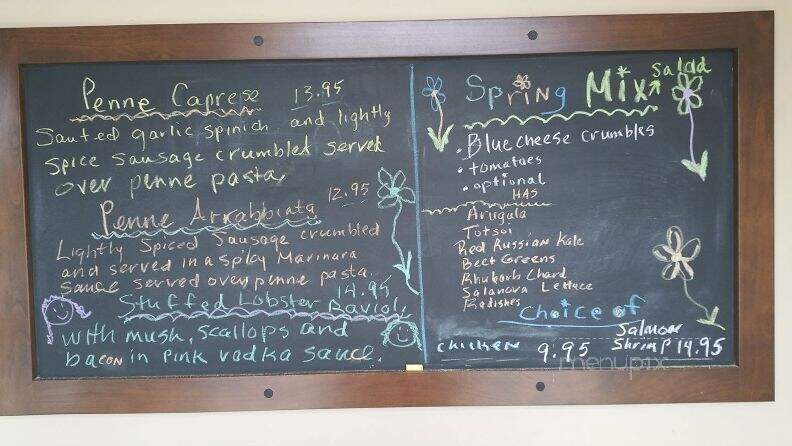 Penne Caprese 13.95
Sauted garlic spinich and lightly
spice sausage crumbled served
over penne pasta
12.95
Penne Arrabbiata
Lightly Spiced Sausage crumbled
and served in a spicy Marinara
sauce served over penne pasta.
14.95
Stuffed Lobster Ravioli
with mush, scallops and
bacon in pink vadka sauce.
Spring Mix Salad
• Blue cheese crumbles
• tomatoes
• optional
HAS
Arugula
Totsoi
Red Russian Kale
Beet Greens
Rhubarb Chard
Salanova Lettuce
Radishes
Choice of
chicken 9.95
Salmon
Shrimp 14.95
menupix